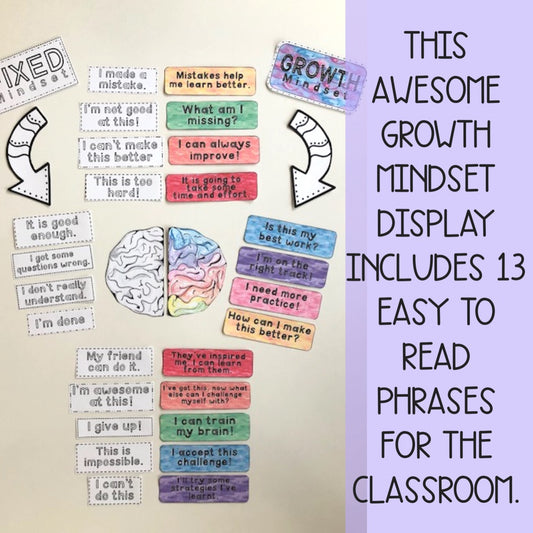 FIXED
Mindset
GROWTH
Mindset
I made a
mistake.
Mistakes help
me learn better.
I'm not good
at this!
What am I
missing?
I can't make
this better
I can always
improve!
This is too
hard!
It is going to
take some
time and effort.
It is good
enough.
Is this my
best work?
I got some
questions wrong.
I'm on the
right track!
I don't really
understand.
I need more
practice!
I'm done
How can I make
this better?
My friend
can do it.
They've inspired
me. I can learn
from them.
I'm awesome
at this!
I've got this, now what
else can I challenge
myself with?
I give up!
I can train
my brain!
This is
impossible.
I accept this
challenge!
I can't
do this
I'll try some
strategies I've
learnt
THIS
AWESOME
GROWTH
MINDSET
DISPLAY
INCLUDES 13
EASY TO
READ
PHRASES
FOR THE
CLASSROOM.